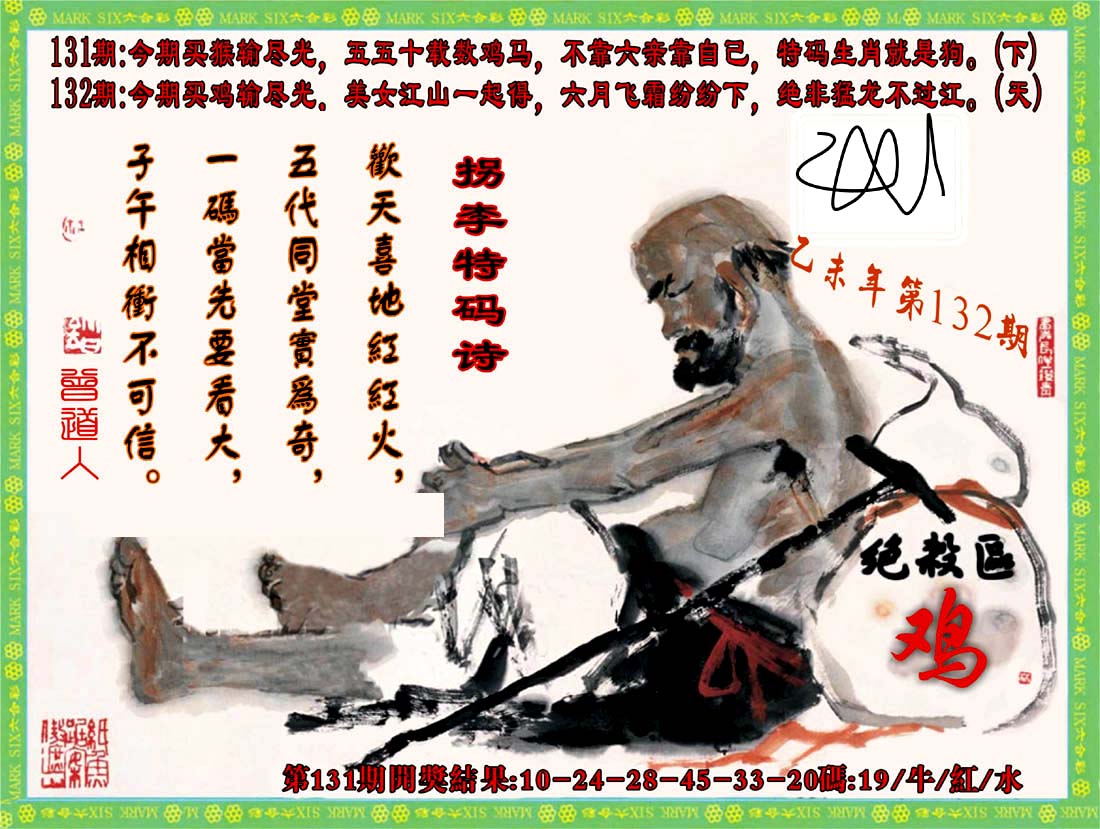 MARK SIX六合彩 MARK SIX六合彩 MARK SIX六合彩 MARK SIX六合彩 MARK SIX六合彩 MARK SIX六合彩
131期:今期买猴输尽光，五五十载数鸡马，不靠六亲靠自己，特码生肖就是狗。(下)
132期:今期买鸡输尽光．美女江山一起得，六月飞霜纷纷下，绝非猛龙不过江。(天)
拐李特码诗
歡天喜地紅紅火，
五代同堂實爲奇，
一碼當先要看大，
子午相衝不可信。
曾道人
乙未年第132期
绝殺區
鸡
第131期開獎結果:10-24-28-45-33-20碼:19/牛/紅/水